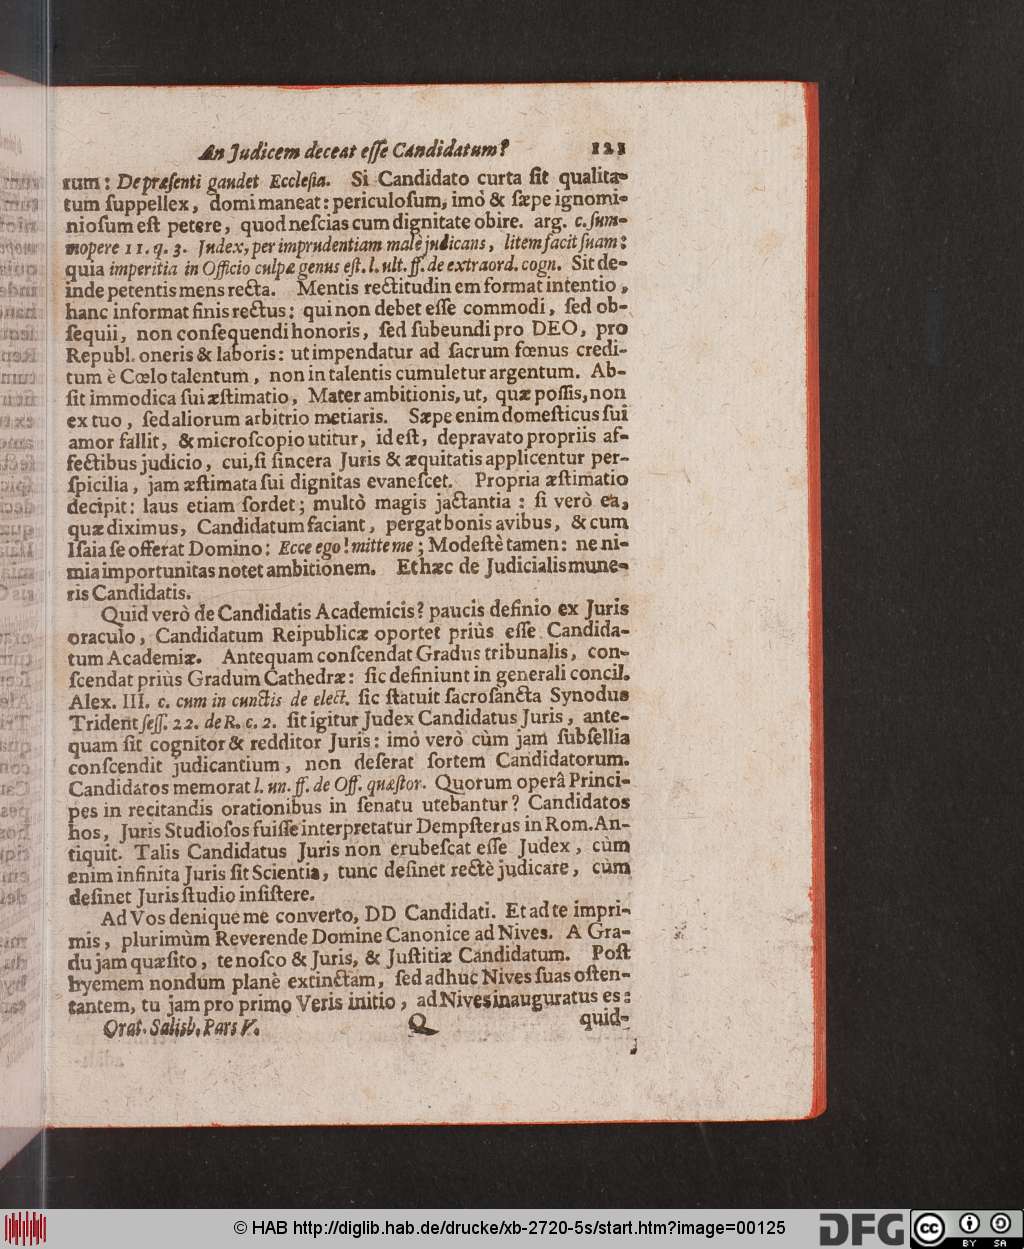 An Judicem deceat eſſe Candidatum? 121
rum: De præſenti gaudet Eccleſia. Si Candidato curta ſit qualita-
tum ſuppellex, domi maneat: periculoſum, imò & ſæpe ignomi-
nioſum eſt petere, quod neſcias cum dignitate obire. arg. c. ſum-
mopere 11. q. 3. Judex, per imprudentiam malè judicans, litem facit ſuam:
quia imperitia in Officio culpæ genus eſt. l. ult. ff. de extraord. cogn. Sit de-
inde petentis mens recta. Mentis rectitudinem format intentio,
hanc informat finis rectus: qui non debet eſſe commodi, ſed ob-
ſequii, non conſequendi honoris, ſed ſubeundi pro DEO, pro
Republ. oneris & laboris: ut impendatur ad ſacrum fœnus credi-
tum è Cœlo talentum, non in talentis cumuletur argentum. Ab-
ſit immodica ſui æſtimatio, Mater ambitionis, ut, quæ poſſis, non
ex tuo, ſed aliorum arbitrio metiaris. Sæpe enim domeſticus ſui
amor fallit, & microſcopio utitur, id eſt, depravato propriis af-
fectibus judicio, cui, ſi ſincera Juris & æquitatis applicentur per-
ſpicilia, jam æſtimata ſui dignitas evaneſcet. Propria æſtimatio
decipit: laus etiam ſordet; multò magis jactantia: ſi verò ea,
quæ diximus, Candidatum faciant, pergat bonis avibus, & cum
Iſaia ſe offerat Domino: Ecce ego! mitte me; Modeſtè tamen: ne ni-
mia importunitas notet ambitionem. Et hæc de Judicialis mune-
ris Candidatis.
Quid verò de Candidatis Academicis? paucis definio ex Juris
oraculo, Candidatum Reipublicæ oportet priùs eſſe Candida-
tum Academiæ. Antequam conſcendat Gradus tribunalis, con-
ſcendat priùs Gradum Cathedræ: ſic definiunt in generali concil.
Alex. III. c. cum in cunctis de elect. ſic ſtatuit ſacroſancta Synodus
Trident ſeſſ. 22. de R. c. 2. ſit igitur Judex Candidatus Juris, ante-
quam ſit cognitor & redditor Juris: imó verò cùm jam ſubſellia
conſcendit judicantium, non deſerat ſortem Candidatorum.
Candidatos memorat l. un. ff. de Off. quæſtor. Quorum operâ Princi-
pes in recitandis orationibus in ſenatu utebantur? Candidatos
hos, Juris Studioſos fuiſſe interpretatur Dempſterus in Rom. An-
tiquit. Talis Candidatus Juris non erubeſcat eſſe Judex, cùm
enim infinita Juris ſit Scientia, tunc deſinet rectè judicare, cùm
deſinet Juris ſtudio inſiſtere.
Ad Vos denique me converto, DD Candidati. Et ad te impri-
mis, plurimùm Reverende Domine Canonice ad Nives. A Gra-
du jam quæſito, te noſco & Juris, & Juſtitiæ Candidatum. Poſt
hyemem nondum planè extinctam, ſed adhuc Nives ſuas oſten-
tantem, tu jam pro primo Veris initio, ad Nives inauguratus es:
Orat. Salisb. Pars V. Q quid-
© HAB http://diglib.hab.de/drucke/xb-2720-5s/start.htm?image=00125
DFG
cc
BY SA